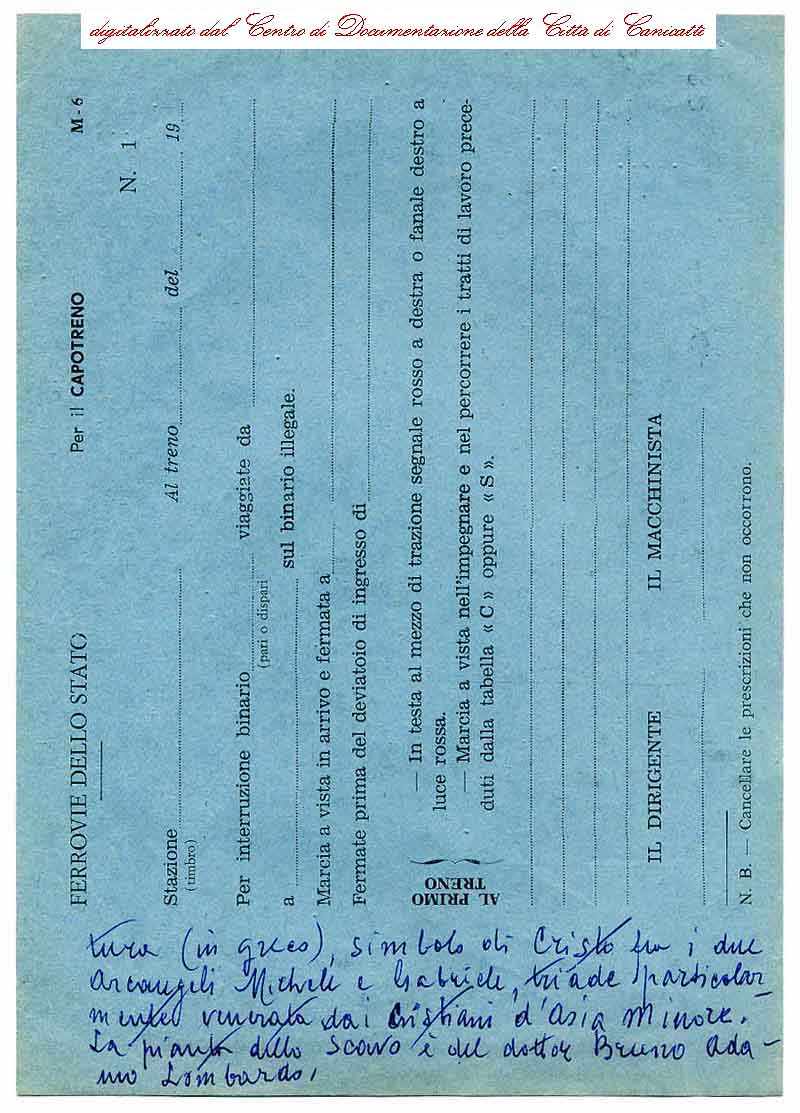 digitalizzato dal Centro di Documentazione della Città di Canicattì
FERROVIE DELLO STATO Per il CAPOTRENO M - 6
N. 1
Stazione Al treno del 19
(timbro)
Per interruzione binario viaggiate da
(pari o dispari)
a sul binario illegale.
Marcia a vista in arrivo e fermata a
Fermate prima del deviatoio di ingresso di
AL PRIMO
TRENO
— In testa al mezzo di trazione segnale rosso a destra o fanale destro a
luce rossa.
— Marcia a vista nell'impegnare e nel percorrere i tratti di lavoro prece-
duti dalla tabella « C » oppure « S ».
IL DIRIGENTE IL MACCHINISTA
N. B. — Cancellare le prescrizioni che non occorrono.
tura (in greco), simbolo di Cristo fra i due
Arcangeli Michele e Gabriele, triade particolar-
mente venerata dai cristiani d'Asia Minore.
La pianta dello scavo è del dottor Bruno Ada-
mo Lombardo.